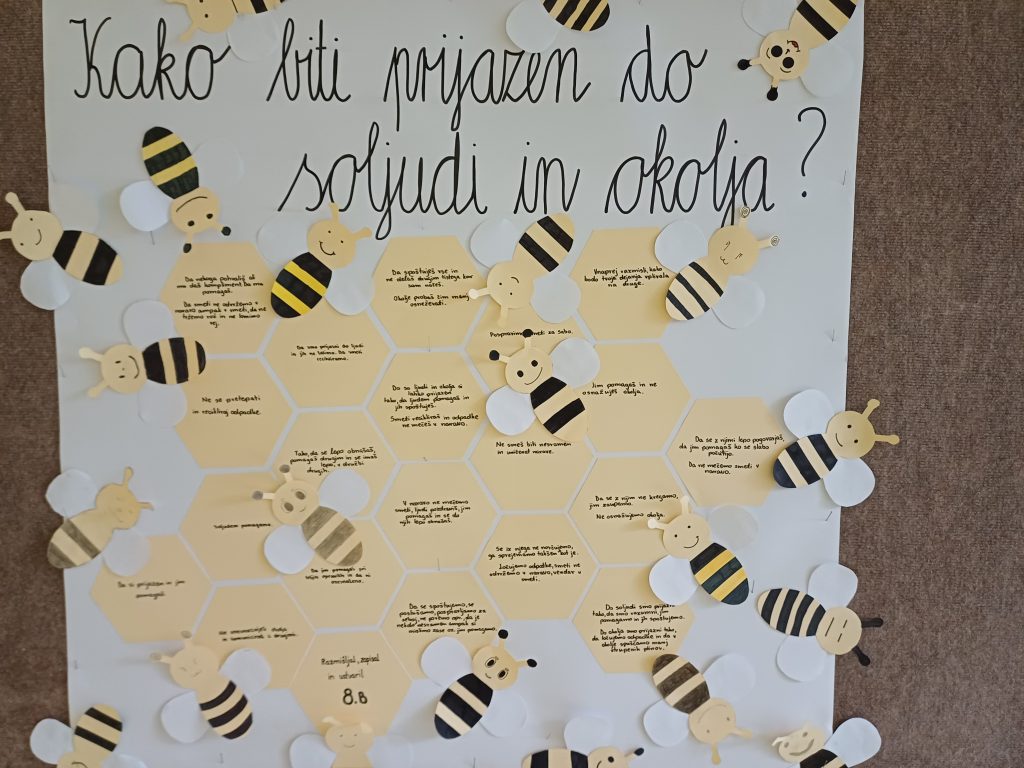 Kako biti prijazen do
soljudi in okolja?
Da nekoga pohvališ ali
mu daš kompliment. Da mu
pomagaš.
Da smeti ne odvržemo v
naravo ampak v smeti, da ne
tržemo rož in ne lomimo
vej.
Da smo prijazni do ljudi
in jih ne
recikliramo.
Da spoštuješ vse in
ne delaš drugim tistega kar
sam nočeš.
Okolje probaš čim manj
onesnaževati.
Pospravimo smeti za sabo.
Vnaprej razmisli, kako
bodo tvoja dejanja vplivala
na druge.
Ne se pretepati
in recikliraj odpadke.
Da so ljudi in okolja si
lahko prijazen
tako, da ljudem pomagaš in
jih spoštuješ.
Smeti recikliraš in odpadke
ne mečeš v naravo.
Jim pomagaš in ne
onesnažuješ okolja.
Ne smeš biti nesramen
in uničevat narave.
Tako, da se lepo obnašaš,
pomagaš drugim in se imaš
lepo, v družbi
drugih.
Da se z njimi lepo pogovarjaš,
da jim pomagaš ko se slabo
počutijo.
Da ne mečemo smeti v
naravo.
Soljudem pomagamo.
V naravo ne mečemo
smeti, ljudi pozdravimo, jim
pomagaš in se do
njih lepo obnašaš.
Da se z njim ne kregamo,
jim zaupamo.
Ne onesnažujemo okolja.
Se iz njega ne norčujemo,
ga sprejemamo takšen kot je.
Ločujemo odpadke, smeti ne
odvržemo v naravo, vendar v
smeti.
Da si prijazen in jim
pomagaš.
Da jim pomagaš pri
in da si
Ne onesnažuješ okolja
in z drugimi.
Da se spoštujemo, se
poslušamo, pospravljamo za
seboj, ne rečemo npr., da je
nekdo nesramen ampak si
mislimo zase oz. jim pomagamo.
Do soljudi smo prijazni
tako, da smo razumni, jim
pomagamo in jih spoštujemo.
Do okolja smo prijazni tako,
da ločujemo odpadke in da v
okolje spuščamo manj
strupenih plinov.
Razmišljal, zapisal
in ustvaril
8.B